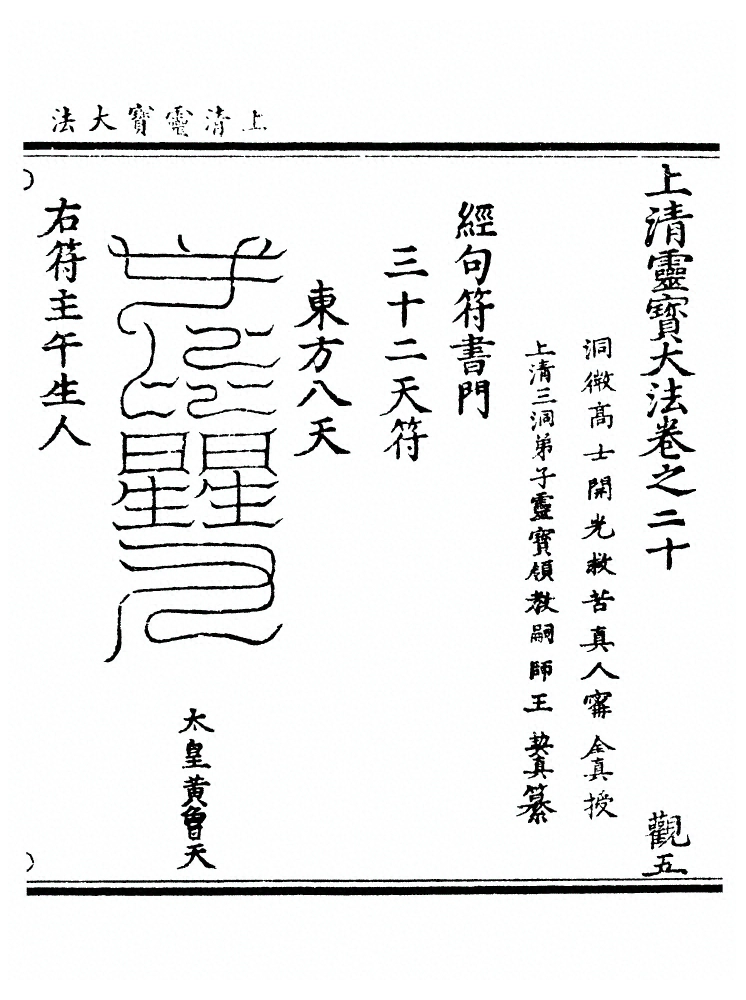 上清靈寶大法
上清靈寶大法卷之二十 觀五
洞微高士開光救苦真人甯全真授
上清三洞弟子靈寶領教嗣師王契真纂
經句符書門
三十二天符
東方八天
太皇黃曾天
右符主午生人